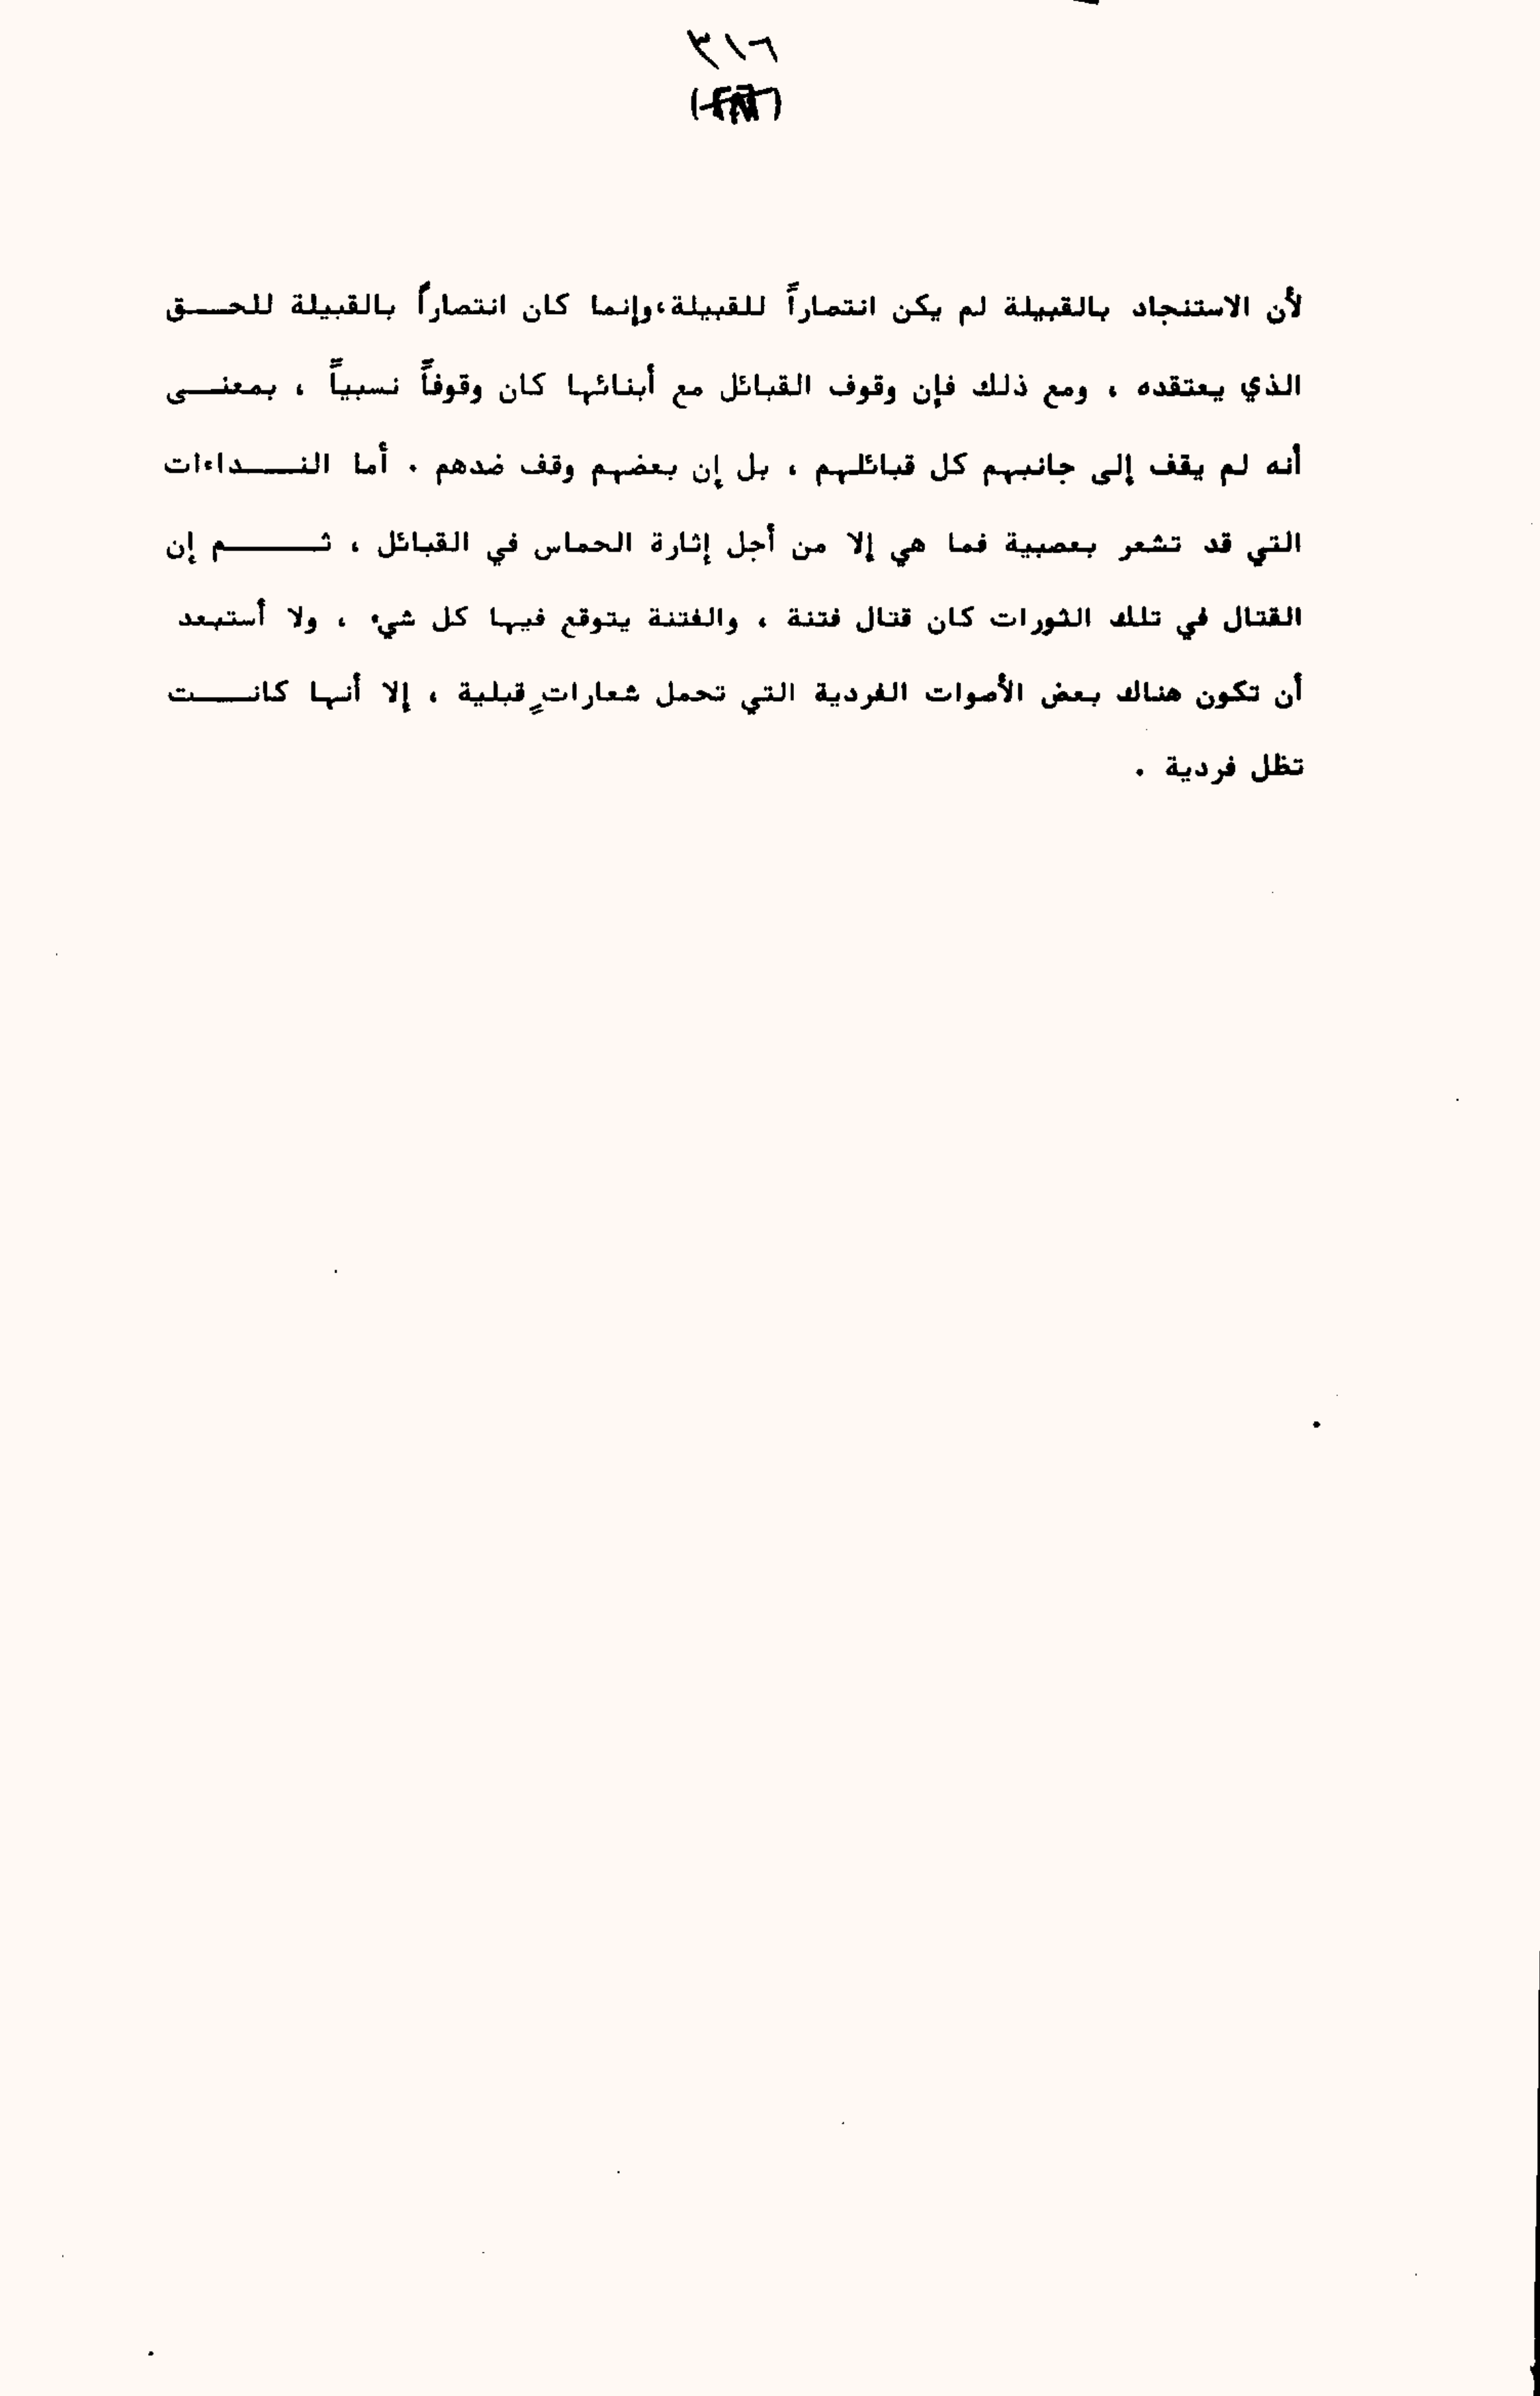 ٣١٦
لأن الاستنجاد بالقبيلة لم يكن انتصاراً للقبيلة،وإنما كان انتصاراً بالقبيلة للحـــق
الذي يعتقده ، ومع ذلك فإن وقوف القبائل مع أبنائها كان وقوفاً نسبياً ، بمعنـــى
أنه لم يقف إلى جانبهم كل قبائلهم ، بل إن بعضهم وقف ضدهم . أما النـــــداءات
التي قد تشعر بعصبية فما هي إلا من أجل إثارة الحماس في القبائل ، ثـــــــم إن
القتال في تلك الثورات كان قتال فتنة ، والفتنة يتوقع فيها كل شيء ، ولا أستبعد
أن تكون هناك بعض الأصوات الفردية التي تحمل شعاراتٍ قبلية ، إلا أنها كانـــــت
تظل فردية .